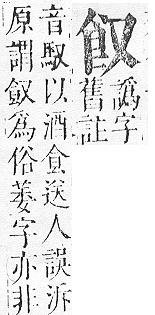 譌字
舊註
音馭以酒食送人誤泝
原謂為俗萎字亦非